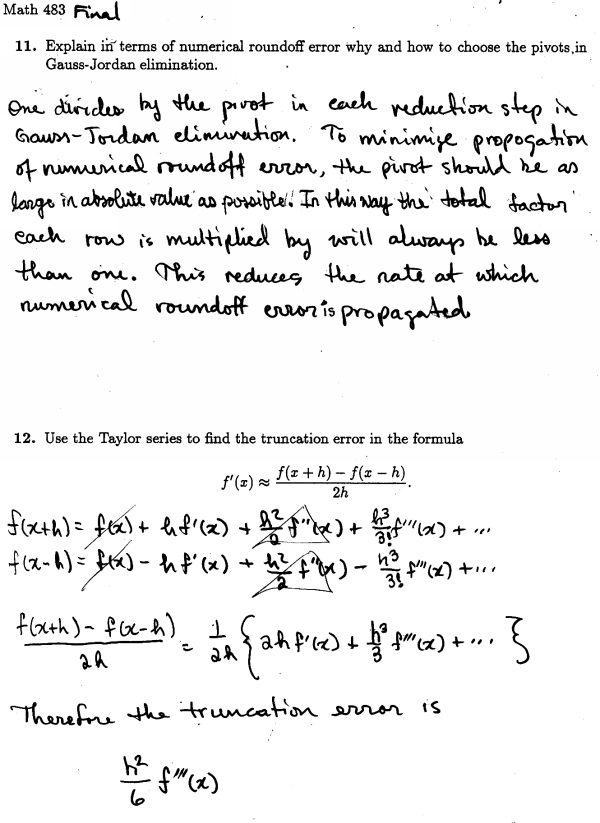 Math 483 Final
11. Explain in terms of numerical roundoff error why and how to choose the pivots in
Gauss-Jordan elimination.
One divides by the pivot in each reduction step in
Gauss-Jordan elimination. To minimize propogation
of numerical roundoff error, the pivot should be as
large in absolute value as possible. In this way the total factor
each row is multiplied by will always be less
than one. This reduces the rate at which
numerical roundoff error is propagated
12. Use the Taylor series to find the truncation error in the formula
f'(x) ≈ (f(x + h) − f(x − h))/2h.
f(x+h) = f(x) + hf'(x) + h²/2 f''(x) + h³/3! f'''(x) + ...
f(x-h) = f(x) - hf'(x) + h²/2 f''(x) - h³/3! f'''(x) + ...
(f(x+h) - f(x-h))/2h = 1/2h { 2hf'(x) + h³/3 f'''(x) + ... }
Therefore the truncation error is
h²/6 f'''(x)